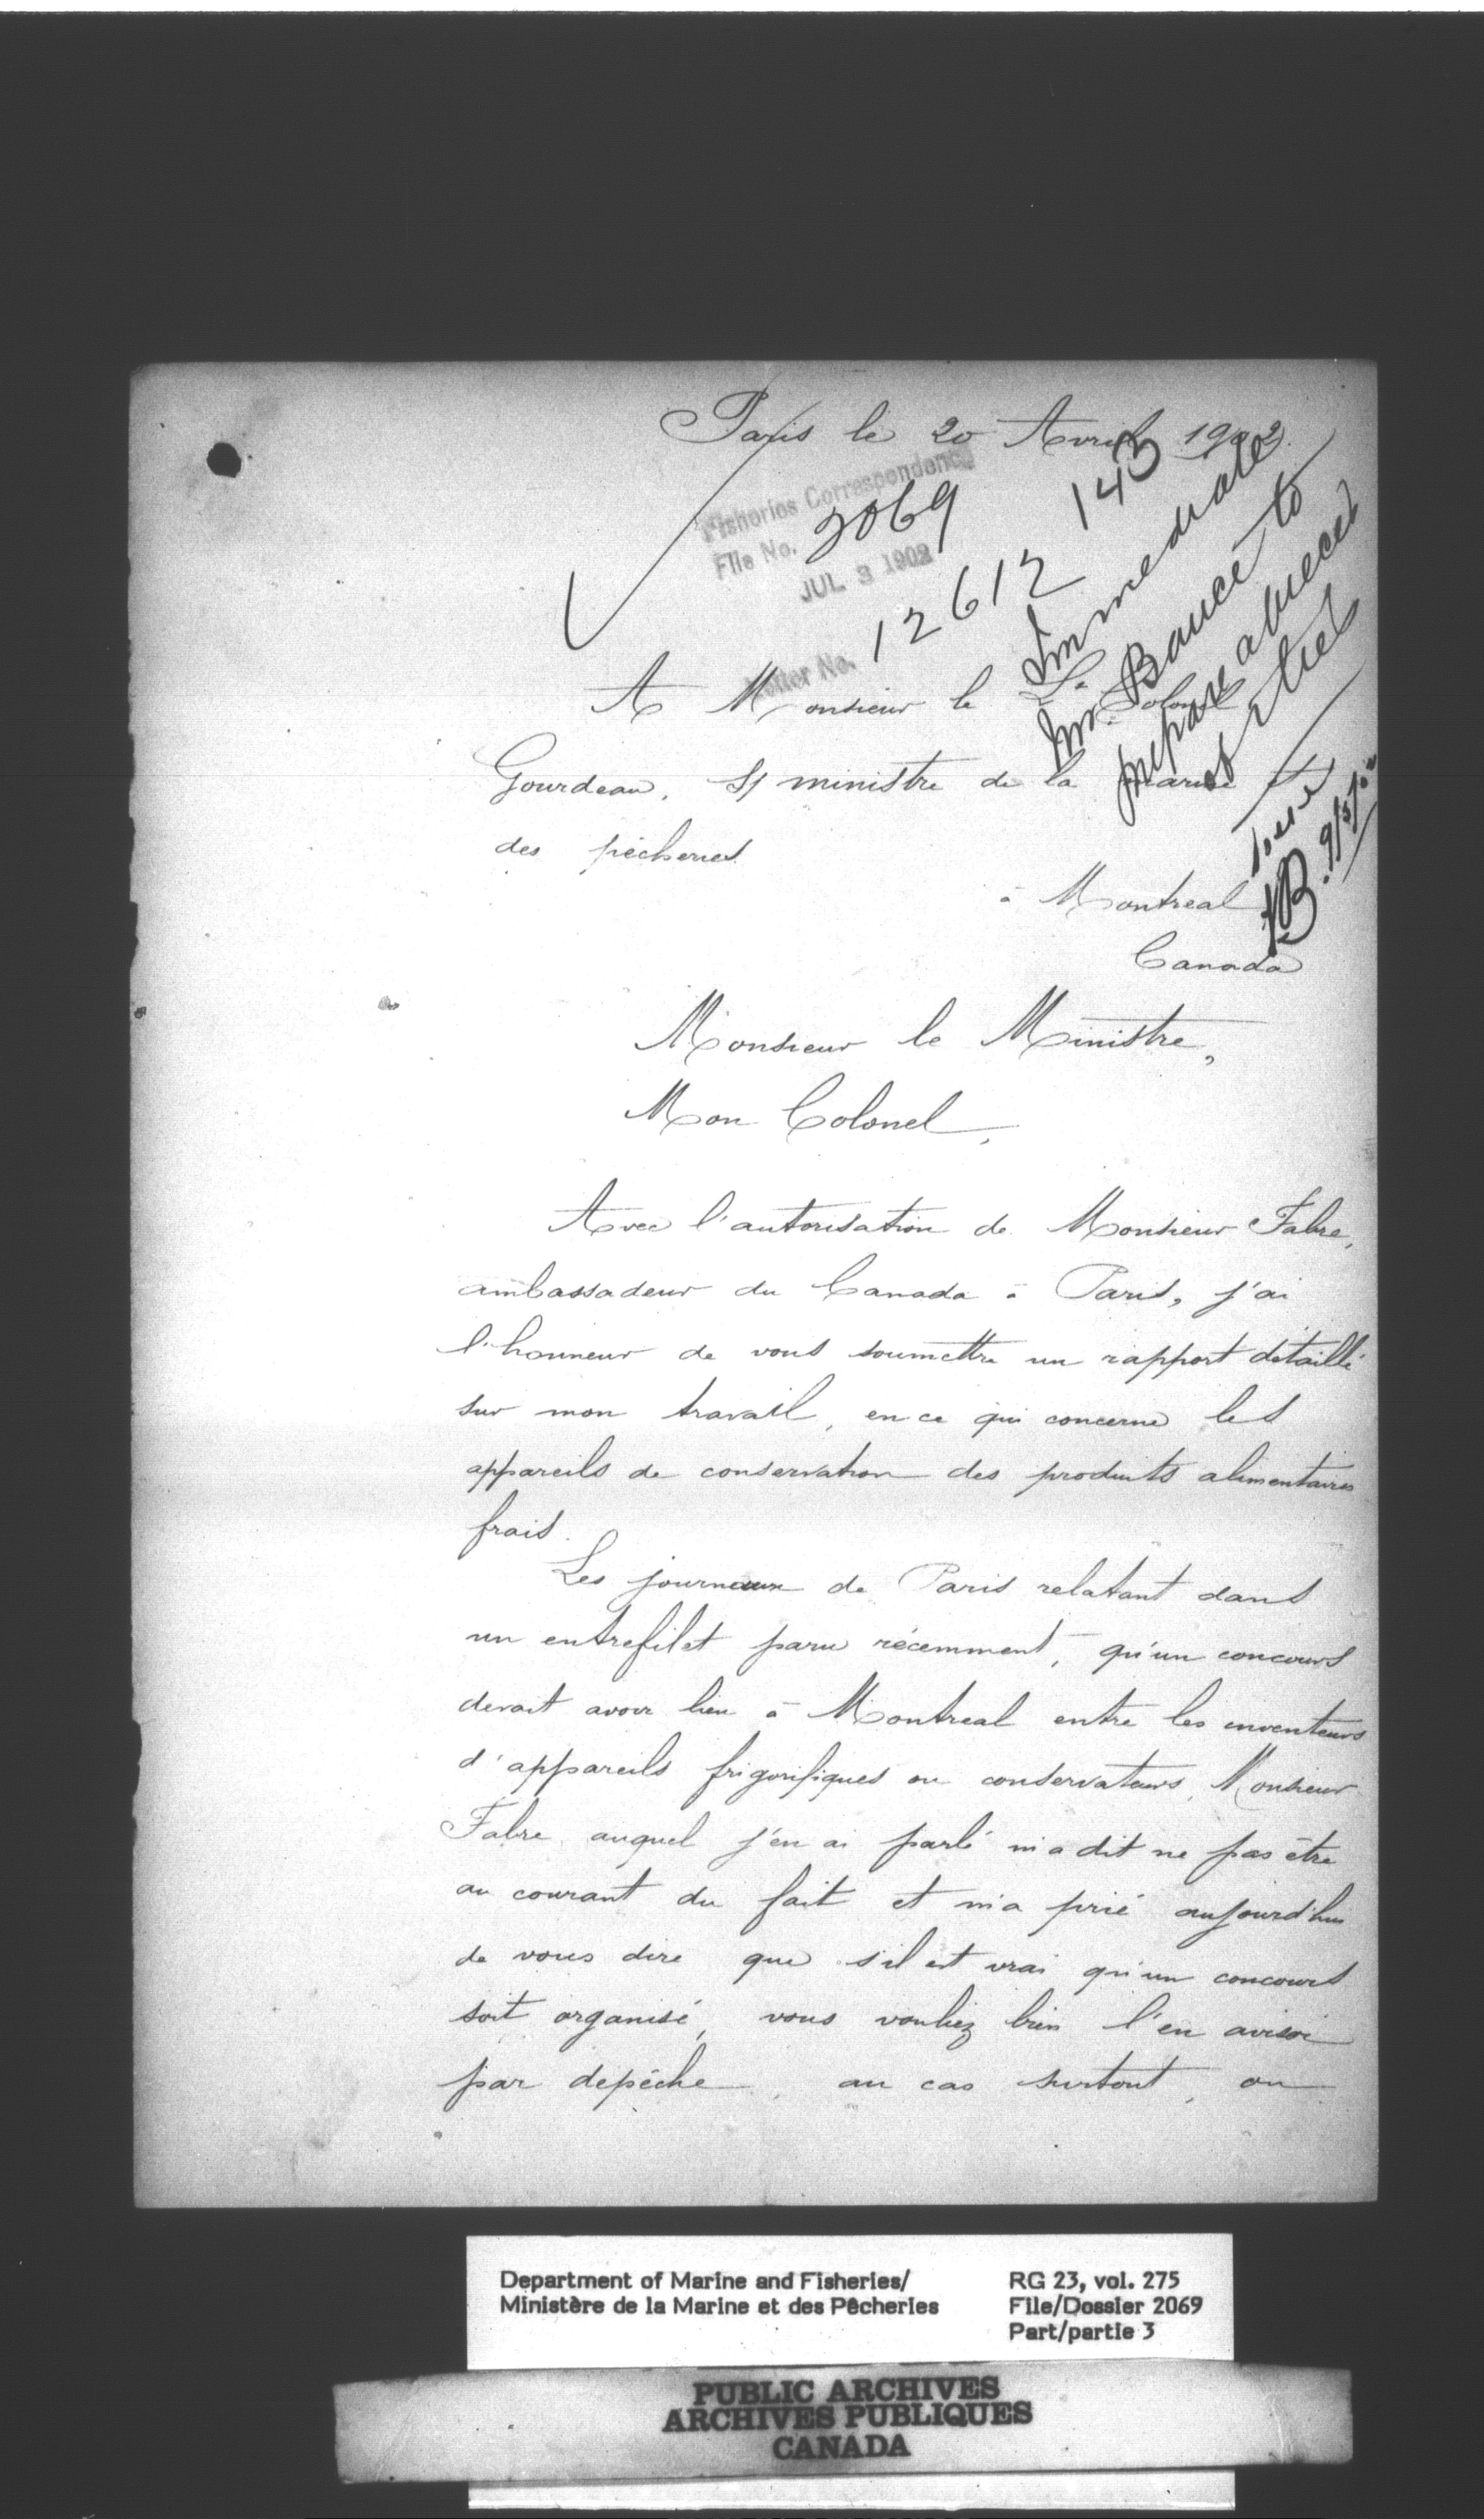 Paris le 20 Avril 1902.
143
Fisheries Correspondence
File No. 2069
JUL 3 1902
Letter No. 12612
Immediate
Mr. Bauce to
prepare a
of
9/5/02
A Monsieur le Lt Colonel
Gourdeau, S/ ministre de la marine et
des pêcheries
à Montreal
Canada
Monsieur le Ministre,
Mon Colonel,
Avec l'autorisation de Monsieur Fabre,
ambassadeur du Canada à Paris, j'ai
l'honneur de vous soumettre un rapport détaillé
sur mon travail, en ce qui concerne les
appareils de conservation des produits alimentaires
frais.
Les journaux de Paris relatant dans
un entrefilet paru récemment, qu'un concours
devait avoir lieu à Montreal entre les inventeurs
d'appareils frigorifiques ou conservateurs, Monsieur
Fabre auquel j'en ai parlé m'a dit ne pas être
au courant du fait et m'a prié aujourd'hui
de vous dire que s'il est vrai qu'un concours
soit organisé, vous vouliez bien l'en aviser
par depêche, au cas surtout, ou
Department of Marine and Fisheries/
Ministère de la Marine et des Pêcheries
RG 23, vol. 275
File/Dossier 2069
Part/partie 3
PUBLIC ARCHIVES
ARCHIVES PUBLIQUES
CANADA